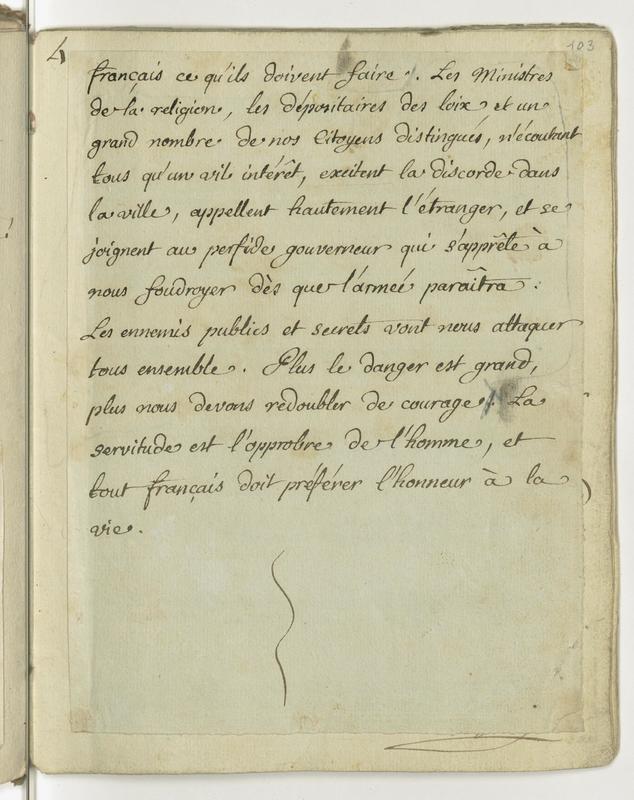 4
103
français ce qu'ils doivent faire. Les Ministres
de la religion, les dépositaires des loix et un
grand nombre de nos Citoyens distingués, n'écoutant
tous qu'un vil intérêt, excitent la discorde dans
la ville, appellent hautement l'étranger, et se
joignent au perfide gouverneur qui s'apprête à
nous foudroyer dès que l'armeé paraîtra.
Les ennemis publics et secrets vont nous attaquer
tous ensemble. Plus le danger est grand,
plus nous devons redoubler de courage. La
servitude est l'opprobre de l'homme, et
tout français doit préférer l'honneur à la
vie.